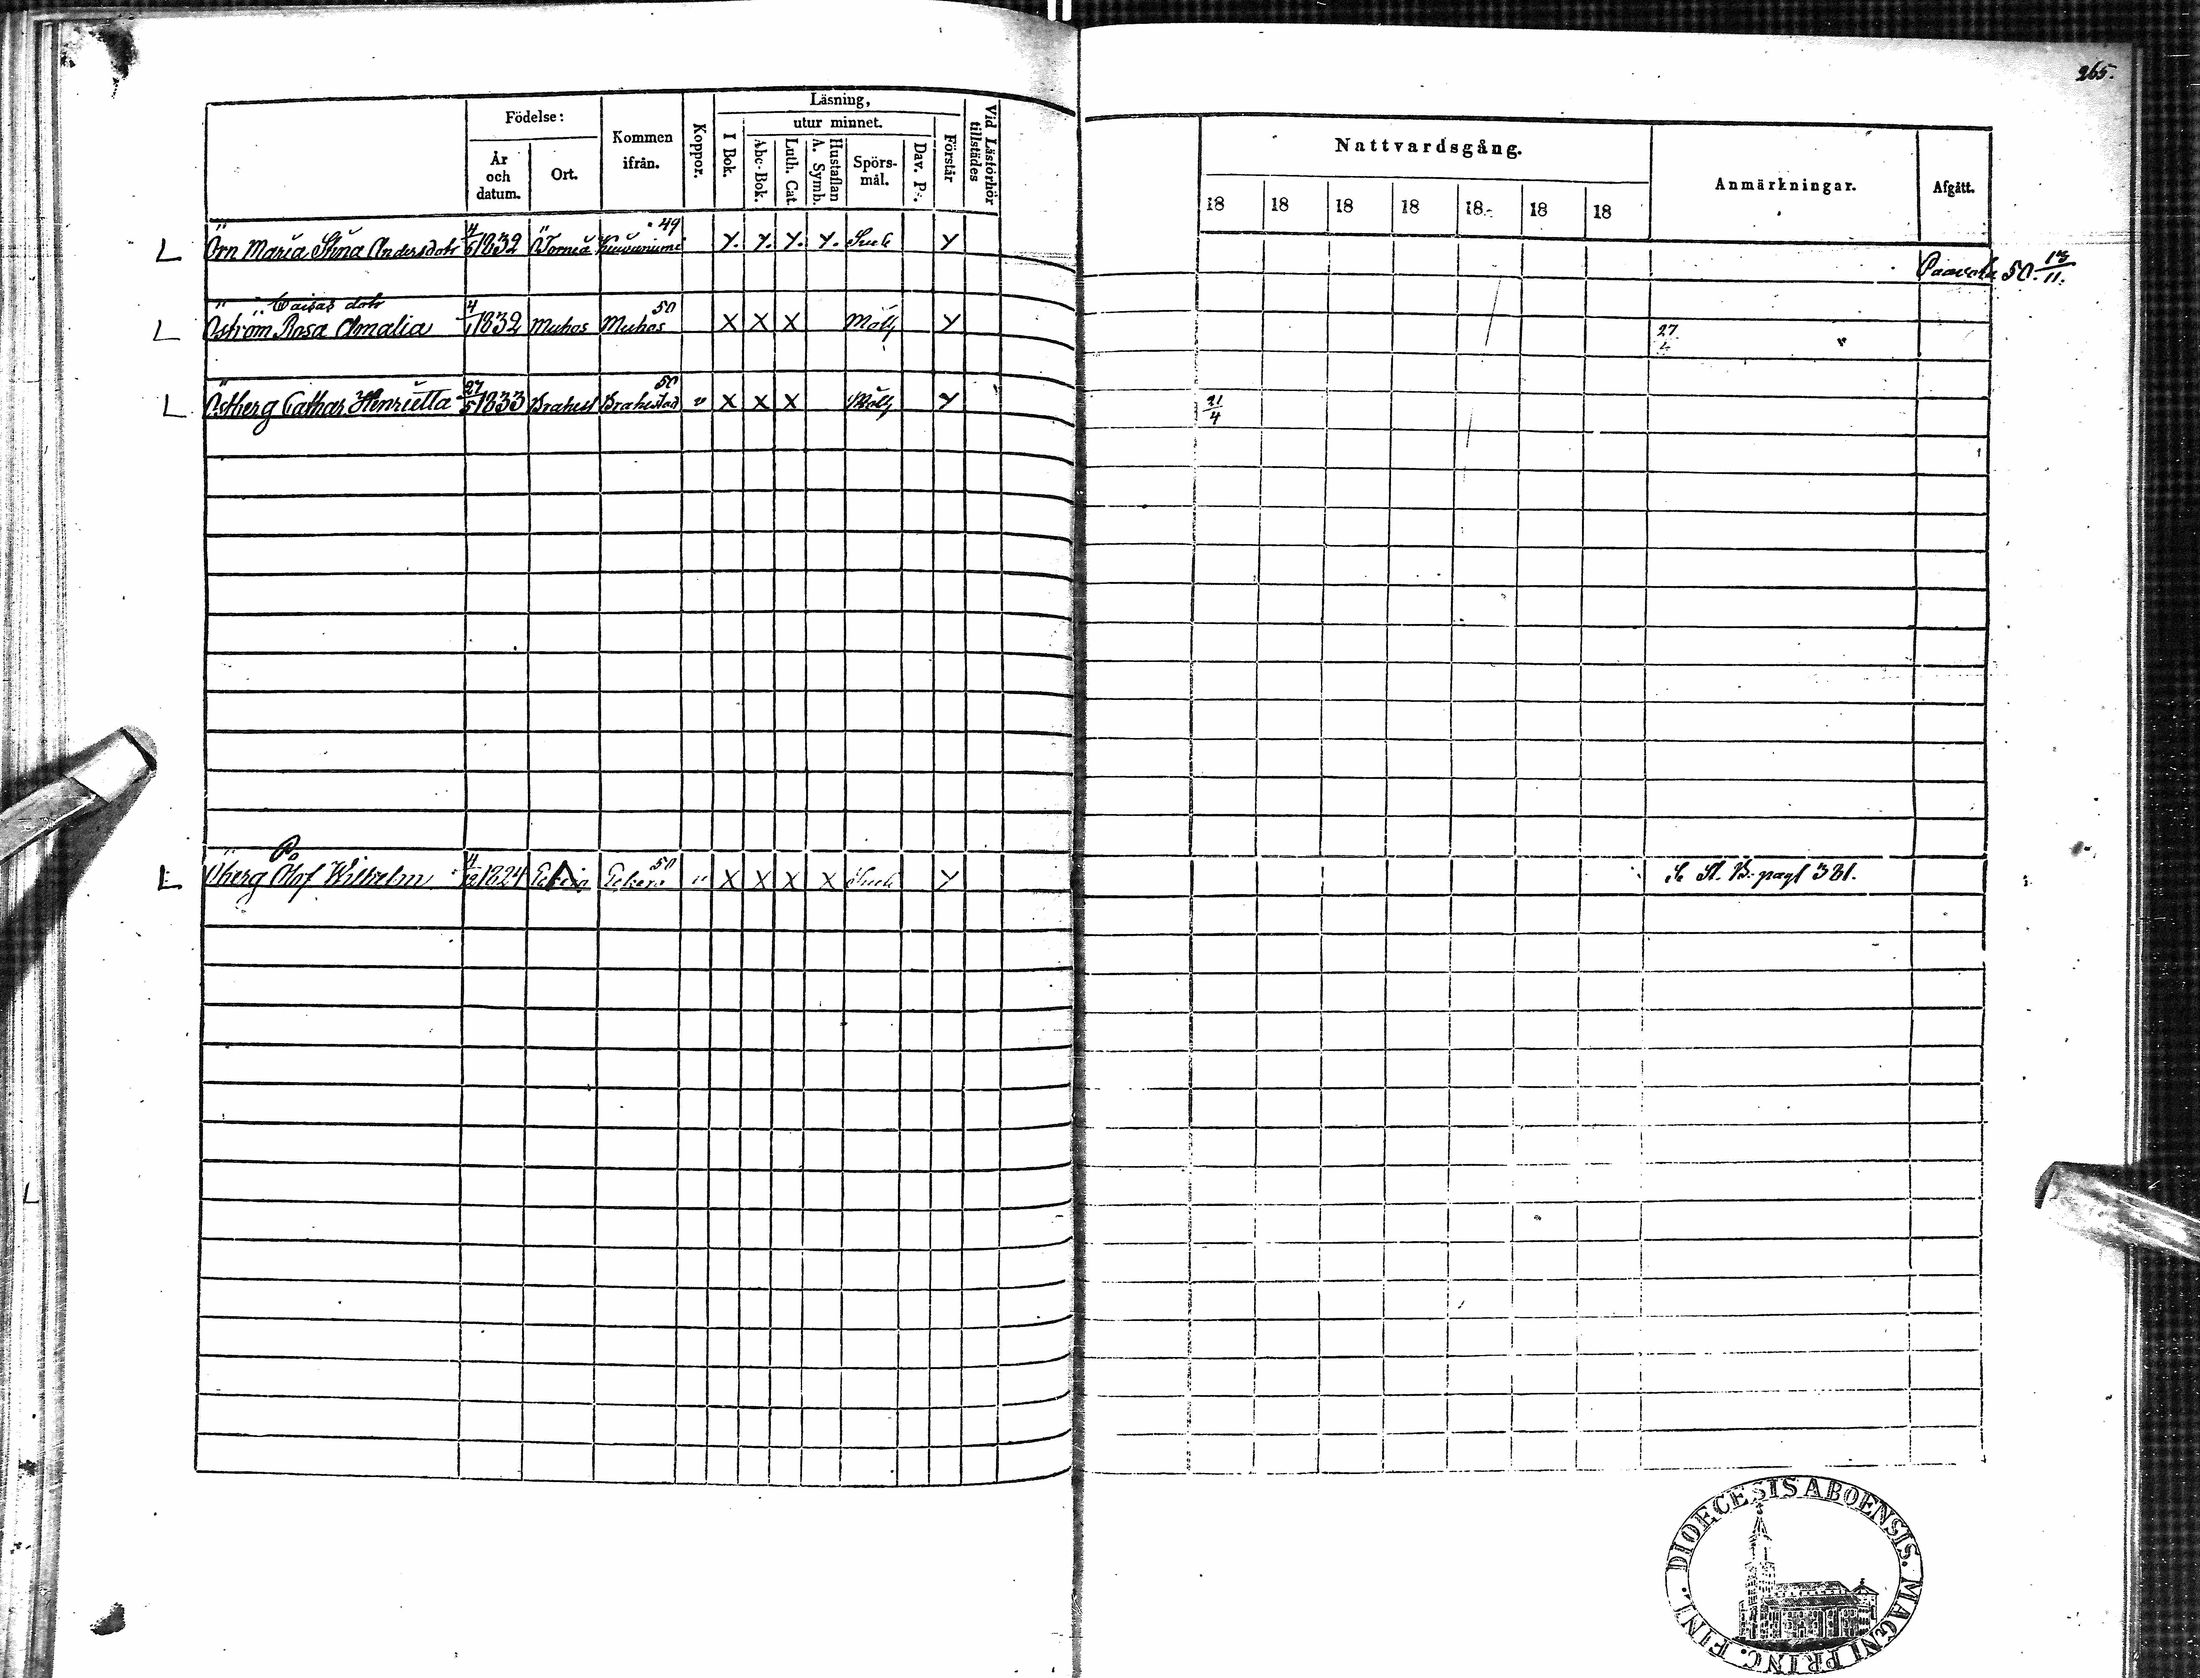 265.
Födelse:
År och datum.
Ort.
Kommen ifrån.
Koppor.
Läsning,
utur minnet.
I Bok.
Abc-Bok.
Luth. Cat.
Hustaflan A. Symb.
Spörs-mål.
Dav. Ps.
Förstår
Vid Läsförhör tillstädes
Nattvardsgång.
18 18 18 18 18 18 18
Anmärkningar.
Afgått.
L Örn Maria Stina Andersdotr 4/5 1832 Ö Torneå 49 Y. Y. Y. Y. Y
Paavola 50 13/11.
Caisas dotr
L Öström Rosa Amalia 4/1 1832 Muhos Muhos 50 X X X Y
27/4
L Östberg Cathar Henrietta 27/5 1833 Brahest Brahestad 50 " X X X Y
21/4
L Öberg Olof Wilhelm 4/12 1824 50 " X X X X Y
S. St. B. pag 381.
DIOECESIS ABOENSIS. MAGNI PRINC. FINL.